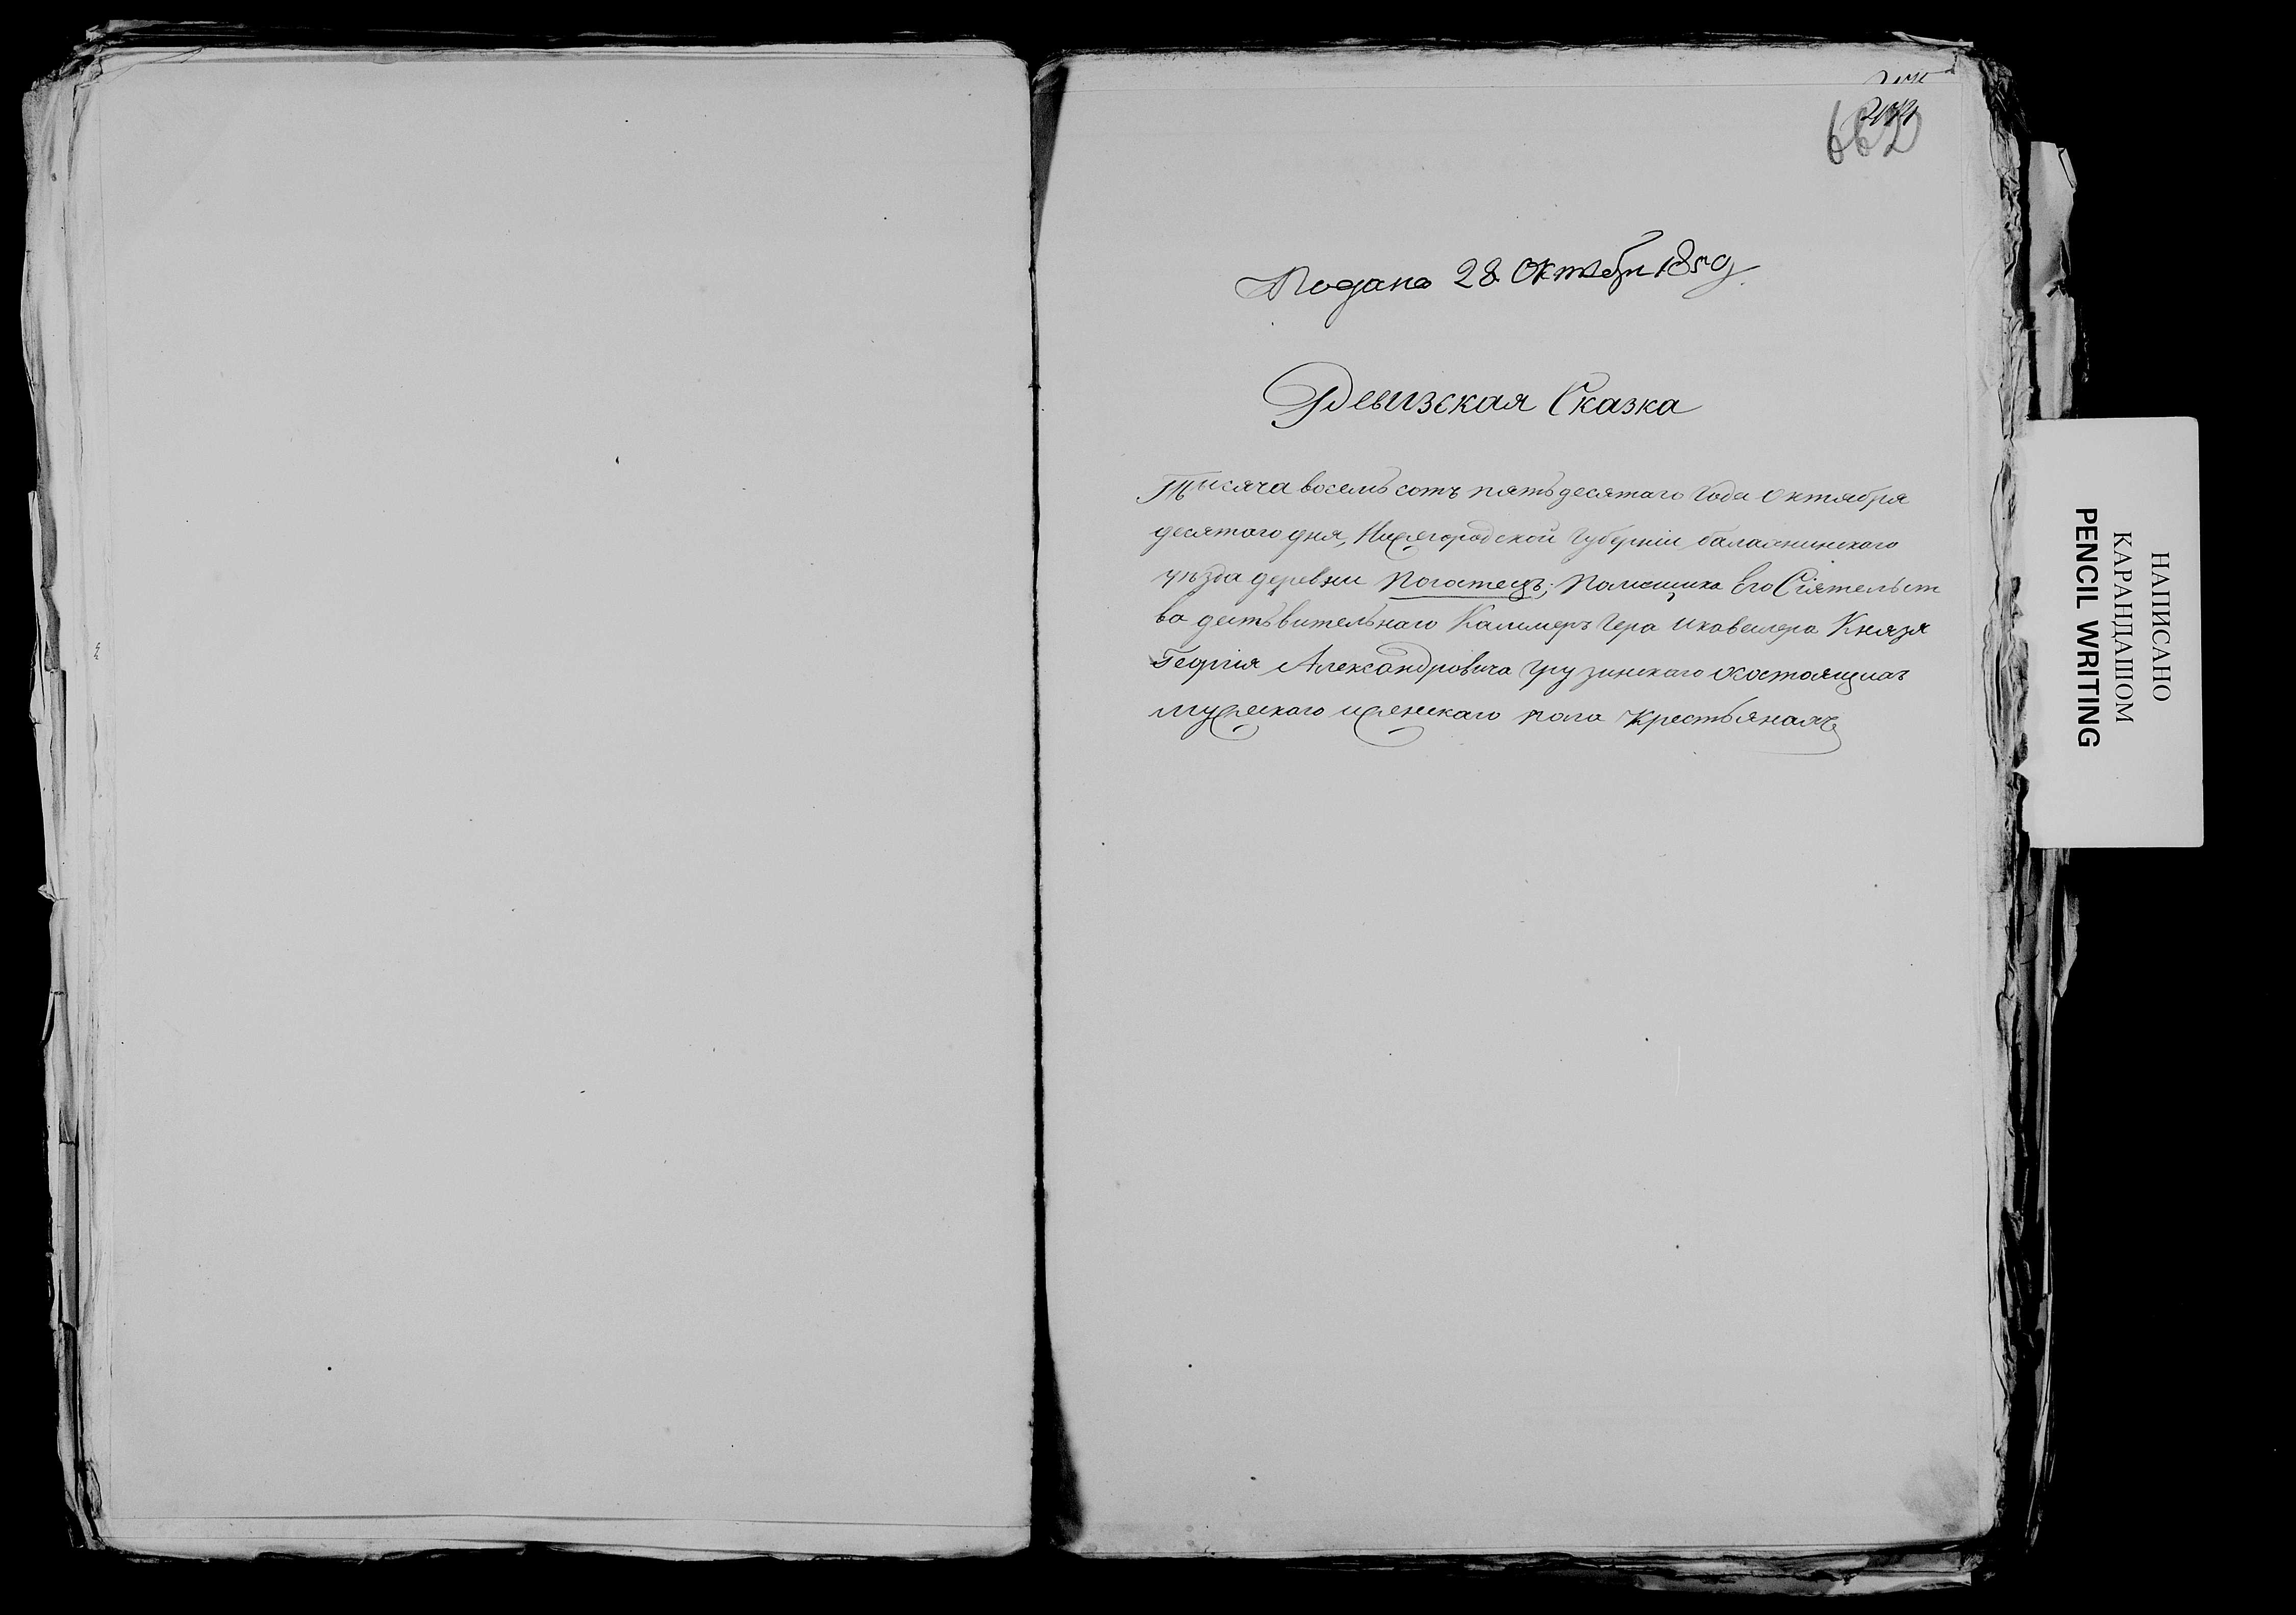 662
Подана 28 Октября 1850.
Ревизская Сказка
Тысяча восемь сотъ пятьдесятаго года октября
десятаго дня, Нижегородской Губернiи балахнинскаго
уѣзда деревни Погостецъ; Помещика Его Сiятельст
ва деиствительнаго Каммеръ Гера икавалера Князя
Георгiя Александровича Грузинскаго осостоящихъ
мужескаго иженскаго пола крестьянахъ
НАПИСАНО
КАРАНДАШОМ
PENCIL WRITING